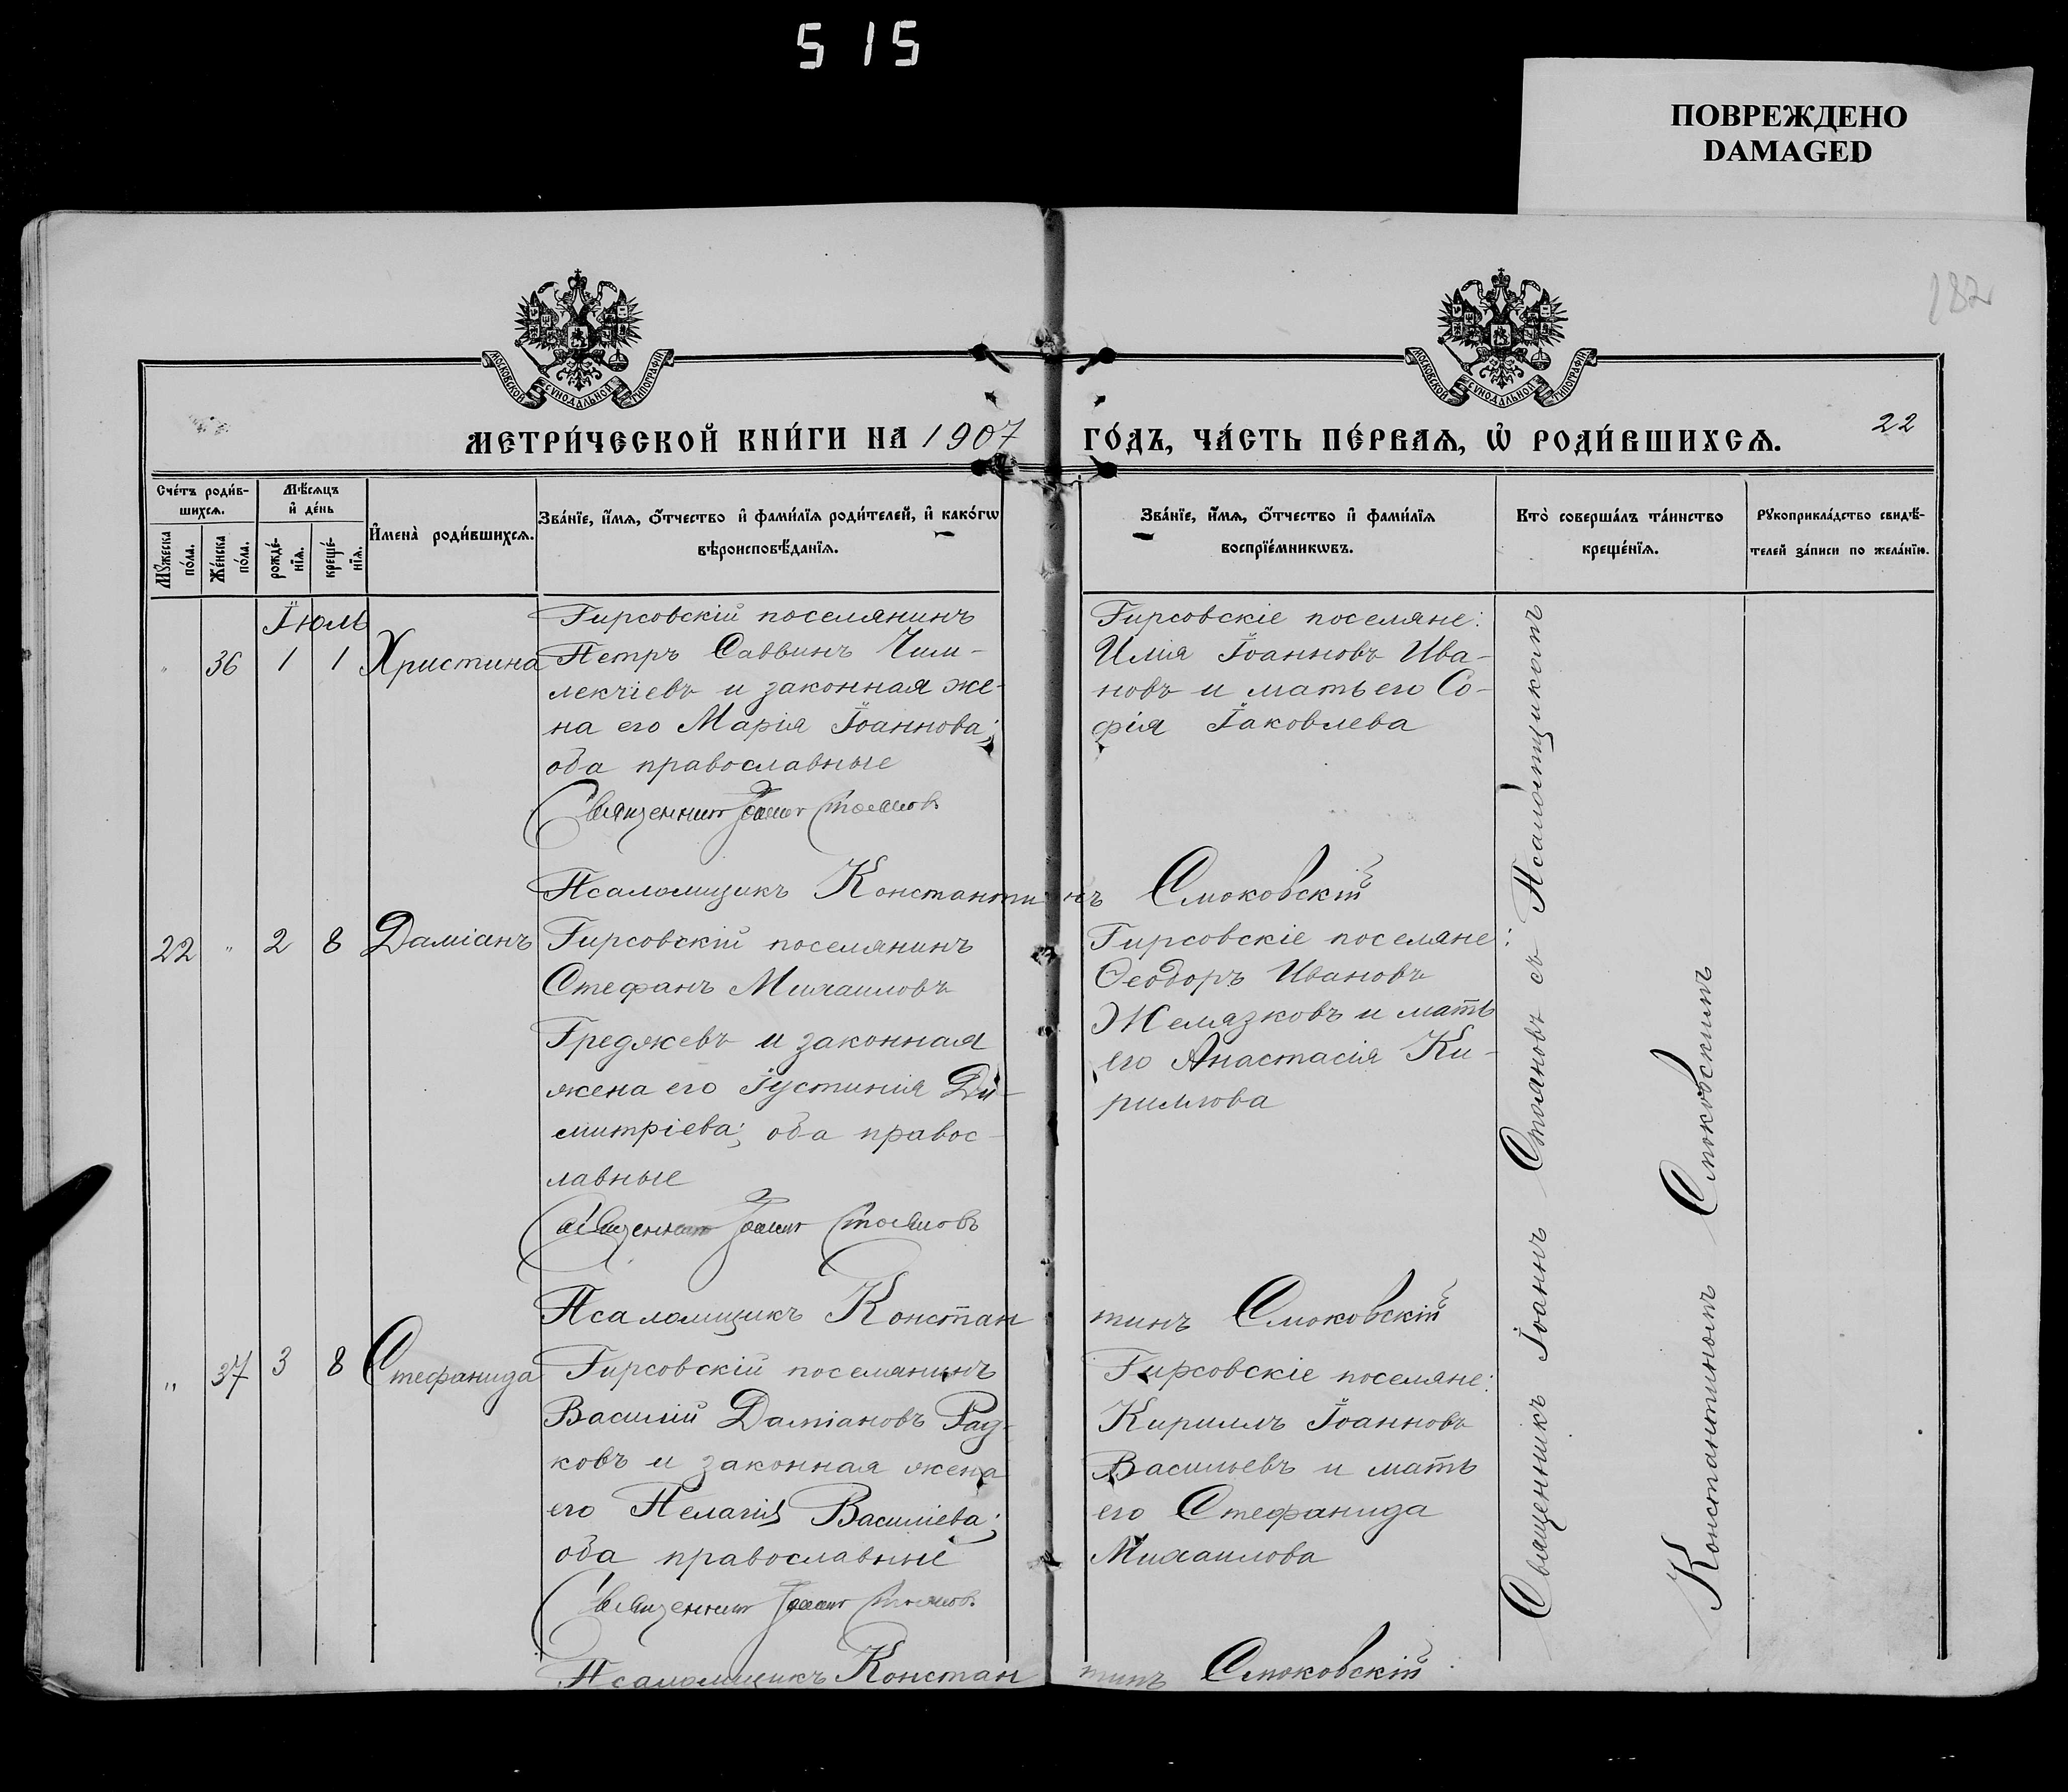 515
ПОВРЕЖДЕНО
DAMAGED
182
МОСКОВСКОЙ СѴНОДАЛЬНОЙ ТИПОГРАФІИ
МОСКОВСКОЙ СѴНОДАЛЬНОЙ ТИПОГРАФІИ
22
МЕТРИ́ЧЕСКОЙ КНИ́ГИ НА 1907 ГО́ДЪ, ЧА́СТЬ ПЕ́РВАѦ, Ѡ҆ РОДИ́ВШИХСѦ.
Сче́тъ роди́в-
шихсѧ.
Мꙋ́жеска
по́ла.
Же́нска
по́ла.
Мѣ́сѧцъ
и҆ де́нь
рожде́-
нїѧ.
креще́-
нїѧ.
И҆мена̀ роди́вшихсѧ.
Зва́нїе, и҆́мѧ, ѻ҆́тчество и҆ фами́лїѧ роди́телей, и҆ како́гѡ
вѣроисповѣ́данїѧ.
Зва́нїе, и҆́мѧ, ѻ҆́тчество и҆ фами́лїѧ
воспрїе́мникѡвъ.
Кто̀ соверша́лъ та́инство
креще́нїѧ.
Рꙋкоприкла́дство свидѣ́-
телей за́писи по жела́нїю.
Іюль
" 36 1 1 Христина
Гирсовскій поселянинъ
Петръ Саввинъ Чим-
лекчіевъ и законная же-
на его Марія Іоаннова;
оба православные
Священникъ Іоаннъ Стояновъ
Гирсовскіе поселяне:
Илія Іоанновъ Ива-
новъ и мать его Со-
фія Іаковлева
Псаломщикъ Константинъ Смоковскій
22 " 2 8 Даміанъ
Гирсовскій поселянинъ
Стефанъ Михаиловъ
Греджевъ и законная
жена его Іустинія Ди-
митріева; оба правос-
лавные
Священникъ Іоаннъ Стояновъ
Гирсовскіе поселяне:
Ѳеодоръ Ивановъ
Желязковъ и мать
его Анастасія Ки-
риллова
Псаломщикъ Константинъ Смоковскій
" 37 3 8 Стефанида
Гирсовскій поселянинъ
Василій Даміановъ Рад-
ковъ и законная жена
его Пелагія Василіева;
оба православные
Священникъ Іоаннъ Стояновъ
Гирсовскіе поселяне:
Кириллъ Іоанновъ
Васильевъ и мать
его Стефанида
Михаилова
Псаломщикъ Константинъ Смоковскій
Священникъ Іоаннъ Стояновъ съ Псаломщикомъ
Константиномъ Смоковскимъ